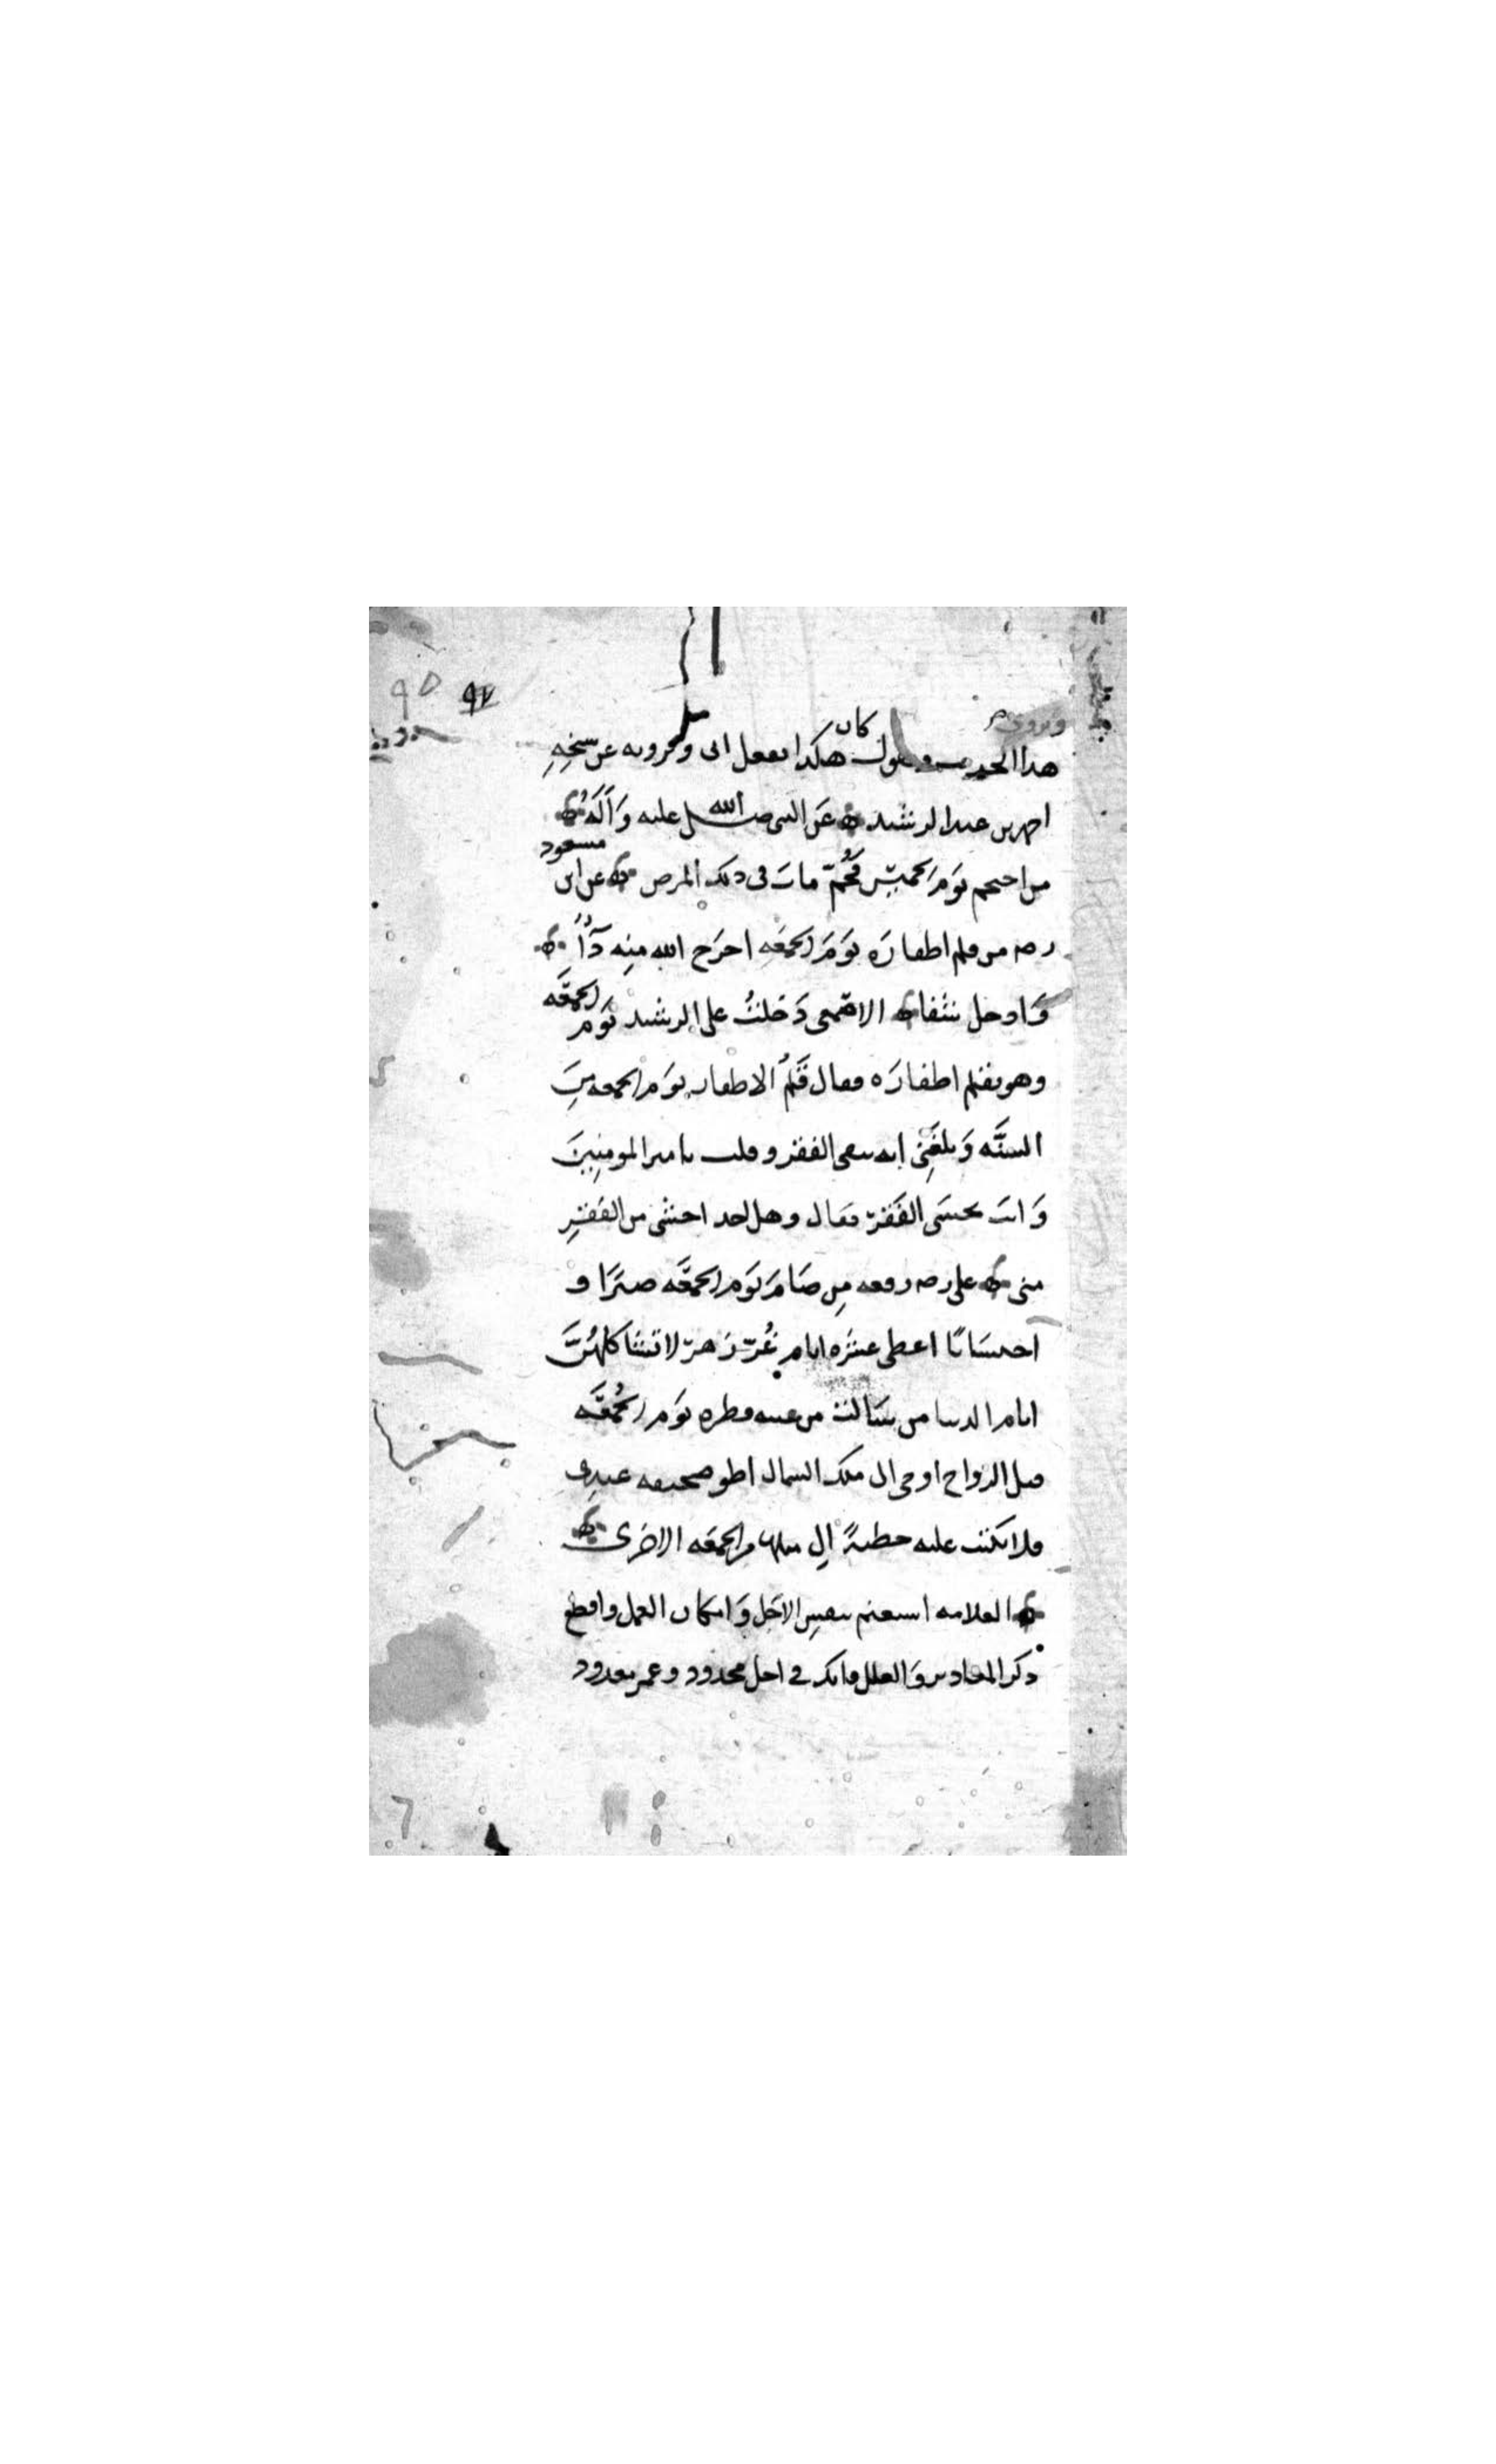 ويروى
هذا الحديث ويقول كان هكذا يفعل ابى ويرويه عن شيخه
احمد بن عبد الرشيد عن النبى صلى الله عليه وآله
من احتجم يوم الخميس فحُمّ مات فى ذلك المرض عن ابن مسعود
رضه من قلم اظفاره يوم الجمعه اخرج الله منه دآءً
وادخل شفا الاصمعى دخلتُ على الرشيد يوم الجمعه
وهو يقلم اظفاره فقال قلمُ الاظفار يوم الجمعه من
السنّه وبلغنى انه ينفى الفقر وقلت يا امير المومنين
وانت تخشى الفقر فقال وهل احد اخشى من الفقر
منى على رضه رفعه من صام يوم الجمعه صبرًا و
احتسابًا اعطى عشره ايام غُرّ زهر لا تشاكلهنّ
ايام الدنيا من سالت من عينه قطره يوم الجُمعَه
قبل الرواح اوحى الى ملك الشمال اطو صحيفه عبدى
فلا تكتب عليه خطيةً الى مثلها من الجمعه الاخرى
العلامه استغنم تنفس الاجل وامكان العمل واقطع
ذكر المعاذير والعلل فانك فى اجل محدود وعمر معدود